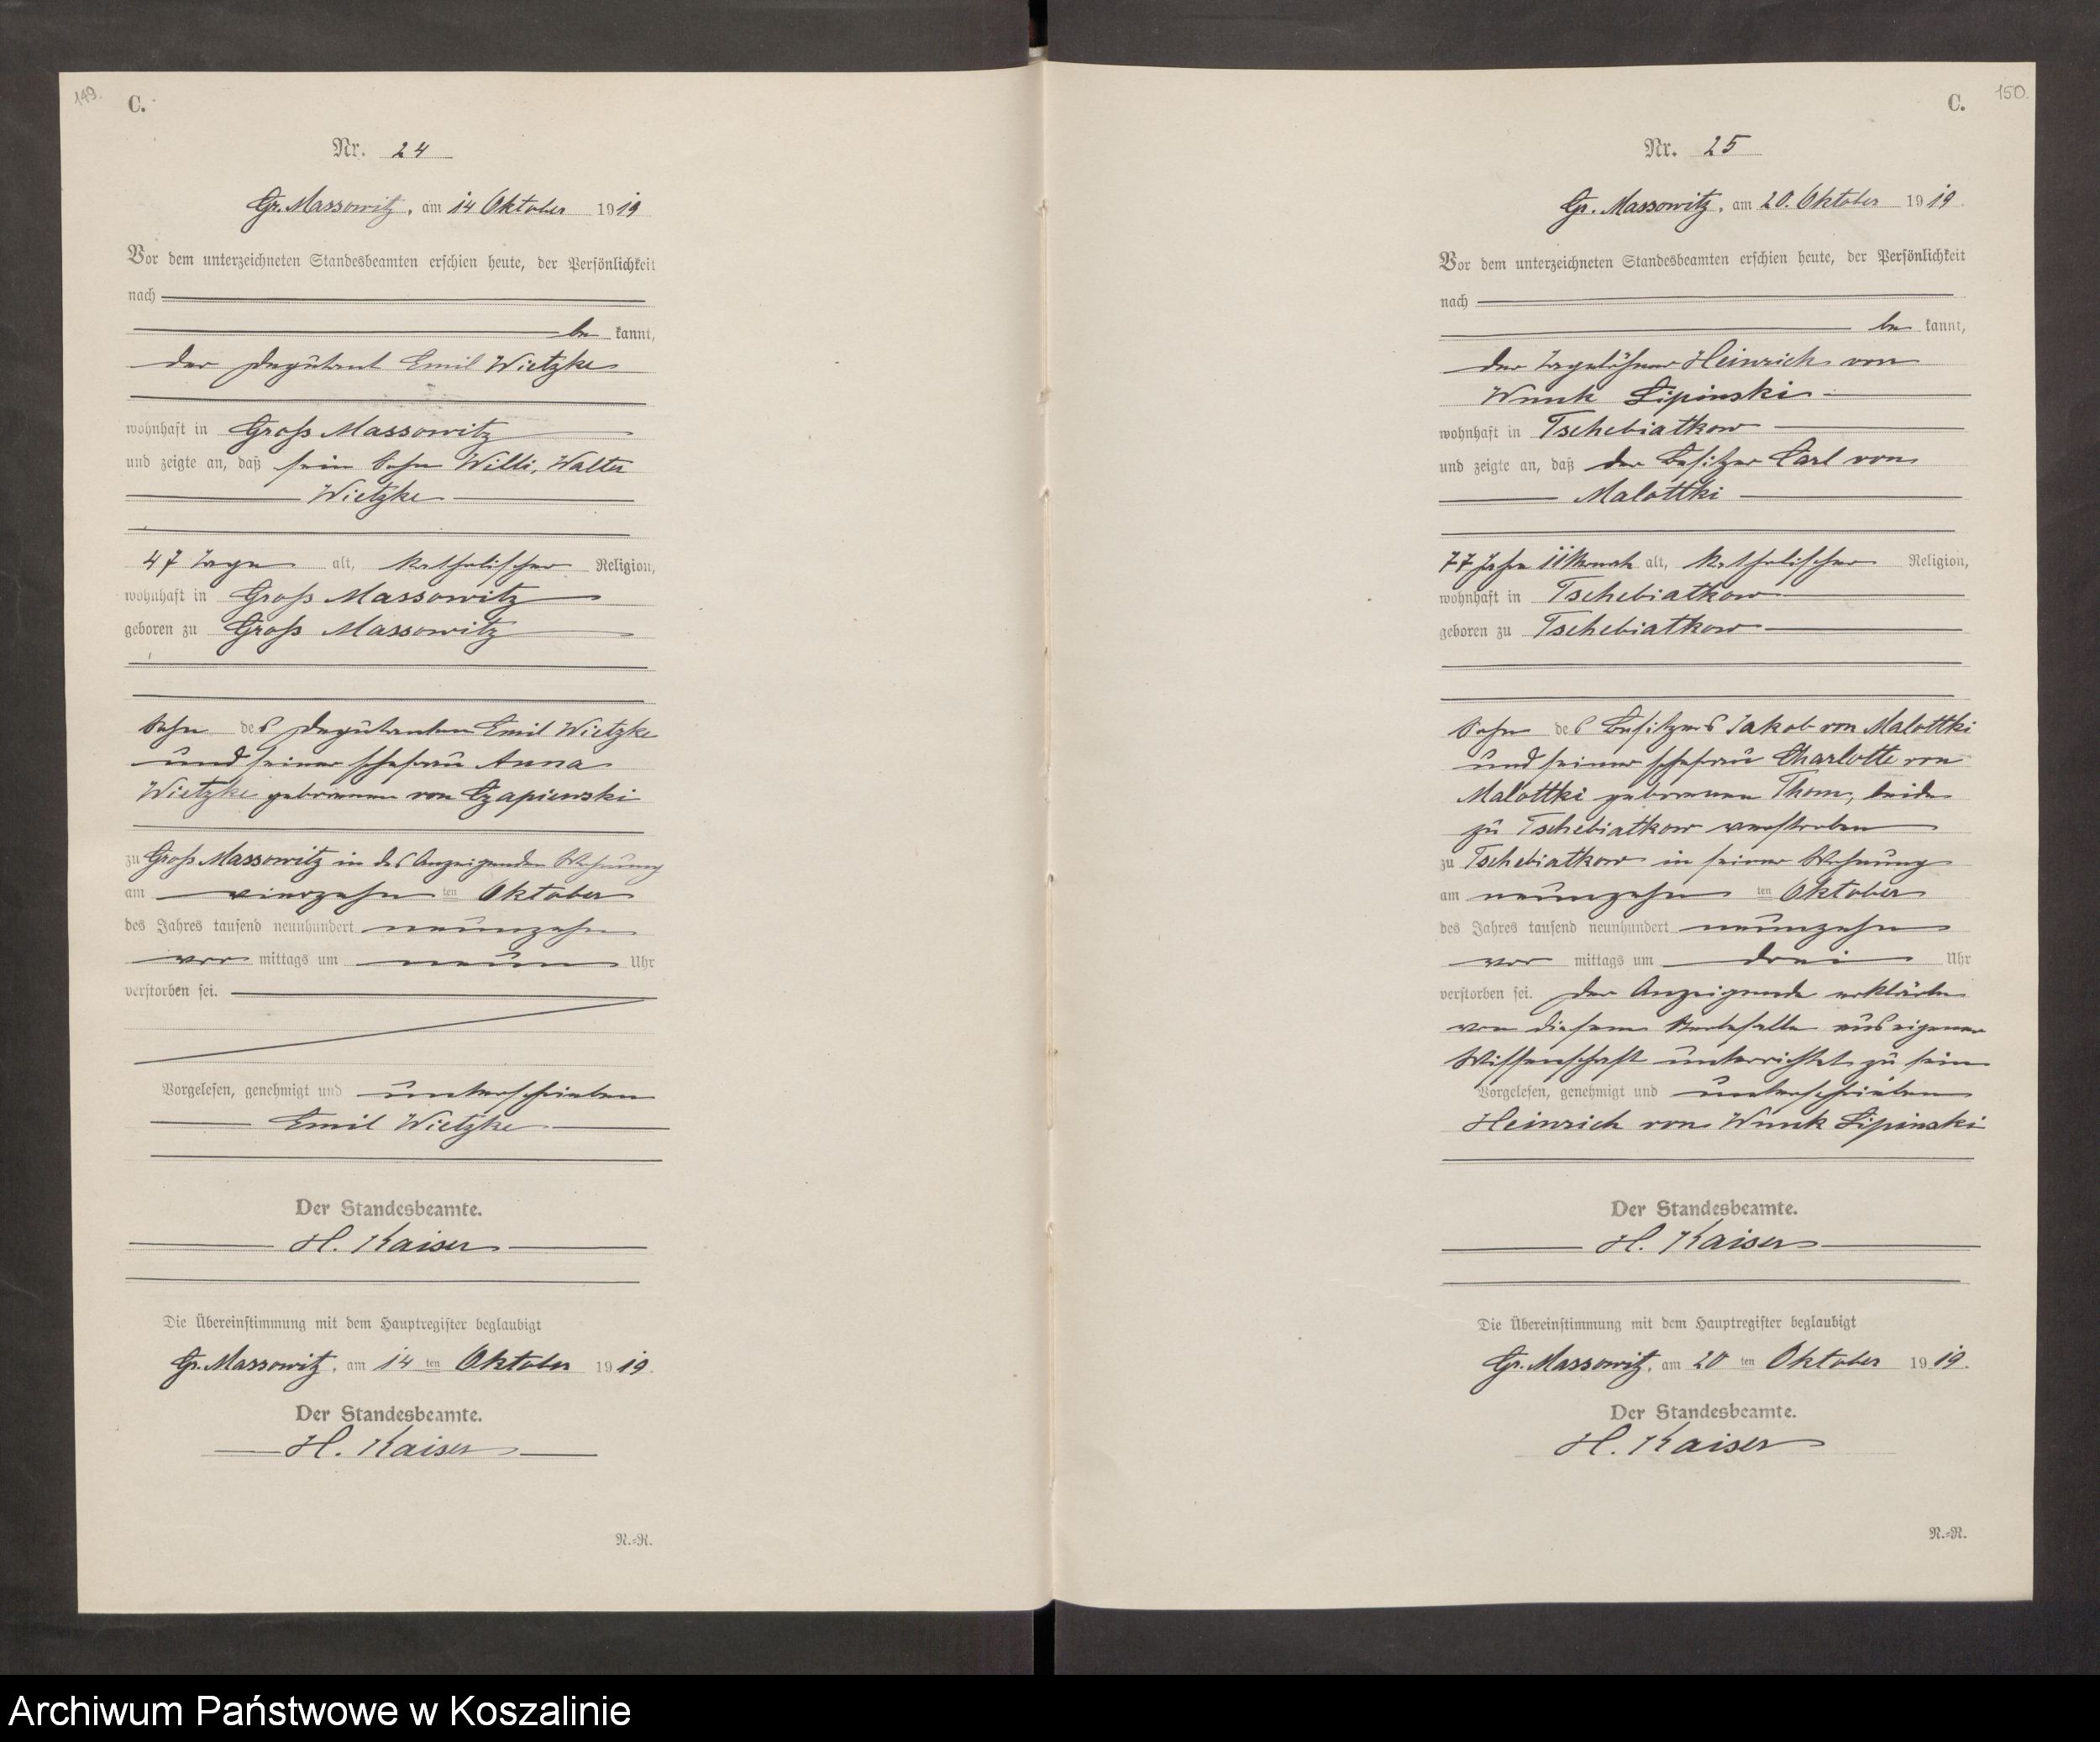 149.
C.
Nr. 24
Gr. Massowitz, am 14 Oktober 1919
Vor dem unterzeichneten Standesbeamten erschien heute, der Persönlichkeit
nach
be kannt,
der Deputant Emil Wietzke
wohnhaft in Groß Massowitz
und zeigte an, daß sein Sohn Willi, Walter
Wietzke
47 Tage alt, katholischer Religion,
wohnhaft in Groß Massowitz
geboren zu Groß Massowitz
Sohn des Deputanten Emil Wietzke
und seiner Ehefrau Anna
Wietzke geborenen von Czapiewski
zu Groß Massowitz in des Anzeigenden Wohnung
am vierzehn ten Oktober
des Jahres tausend neunhundert neunzehn
vor mittags um neun Uhr
verstorben sei.
Vorgelesen, genehmigt und unterschrieben
Emil Wietzke
Der Standesbeamte.
H. Kaiser
Die Übereinstimmung mit dem Hauptregister beglaubigt
Gr. Massowitz, am 14 ten Oktober 1919.
Der Standesbeamte.
H. Kaiser
N.=R.
150.
C.
Nr. 25
Gr. Massowitz, am 20. Oktober 1919.
Vor dem unterzeichneten Standesbeamten erschien heute, der Persönlichkeit
nach
be kannt,
der Tagelöhner Heinrich von
Wnuk Lipinski
wohnhaft in Tschebiatkow
und zeigte an, daß der Besitzer Carl von
Malottki
77 Jahre 11 Monat alt, katholischer Religion,
wohnhaft in Tschebiatkow
geboren zu Tschebiatkow
Sohn des Besitzers Jakob von Malottki
und seiner Ehefrau Charlotte von
Malottki geborenen Thom, beide
zu Tschebiatkow verstorben
zu Tschebiatkow in seiner Wohnung
am neunzehn ten Oktober
des Jahres tausend neunhundert neunzehn
vor mittags um drei Uhr
verstorben sei. Der Anzeigende erklärte
von diesem Sterbefalle aus eigener
Wissenschaft unterrichtet zu sein
Vorgelesen, genehmigt und unterschrieben
Heinrich von Wnuk Lipinski
Der Standesbeamte.
H. Kaiser
Die Übereinstimmung mit dem Hauptregister beglaubigt
Gr. Massowitz, am 20 ten Oktober 1919.
Der Standesbeamte.
H. Kaiser
N.=R.
Archiwum Państwowe w Koszalinie